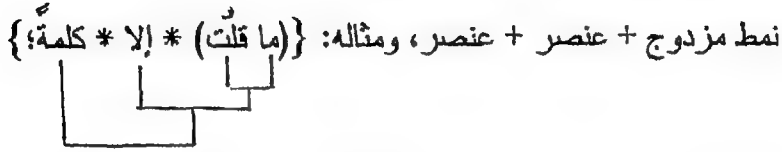 نمط مزدوج + عنصر + عنصر، ومثاله: {(ما قلتُ) * إلا * كلمةً؛}